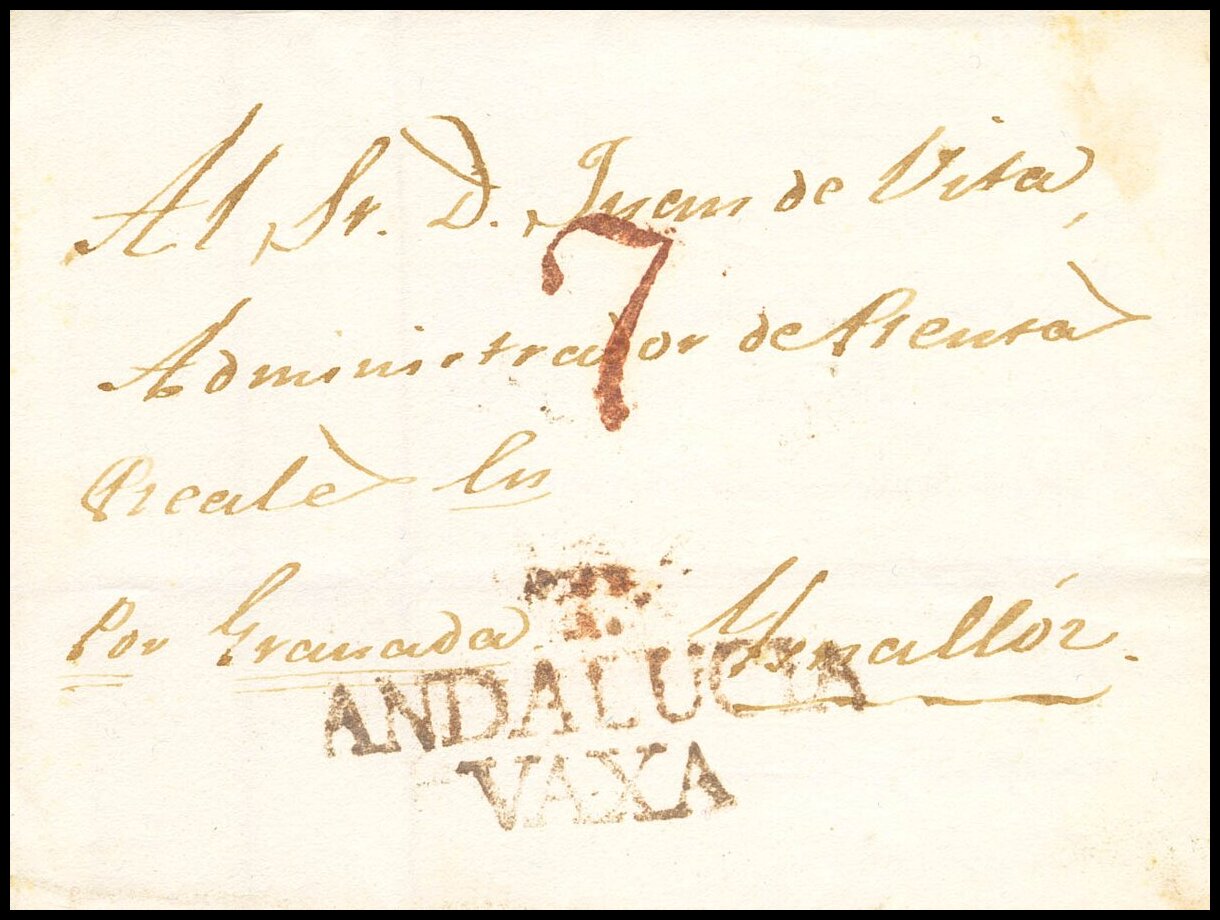 Al Sr. D. Juan de Vita,
7
Administrador de Renta
Reale En
Por Granada. Ysnallóz.
ANDALUCIA
VAXA